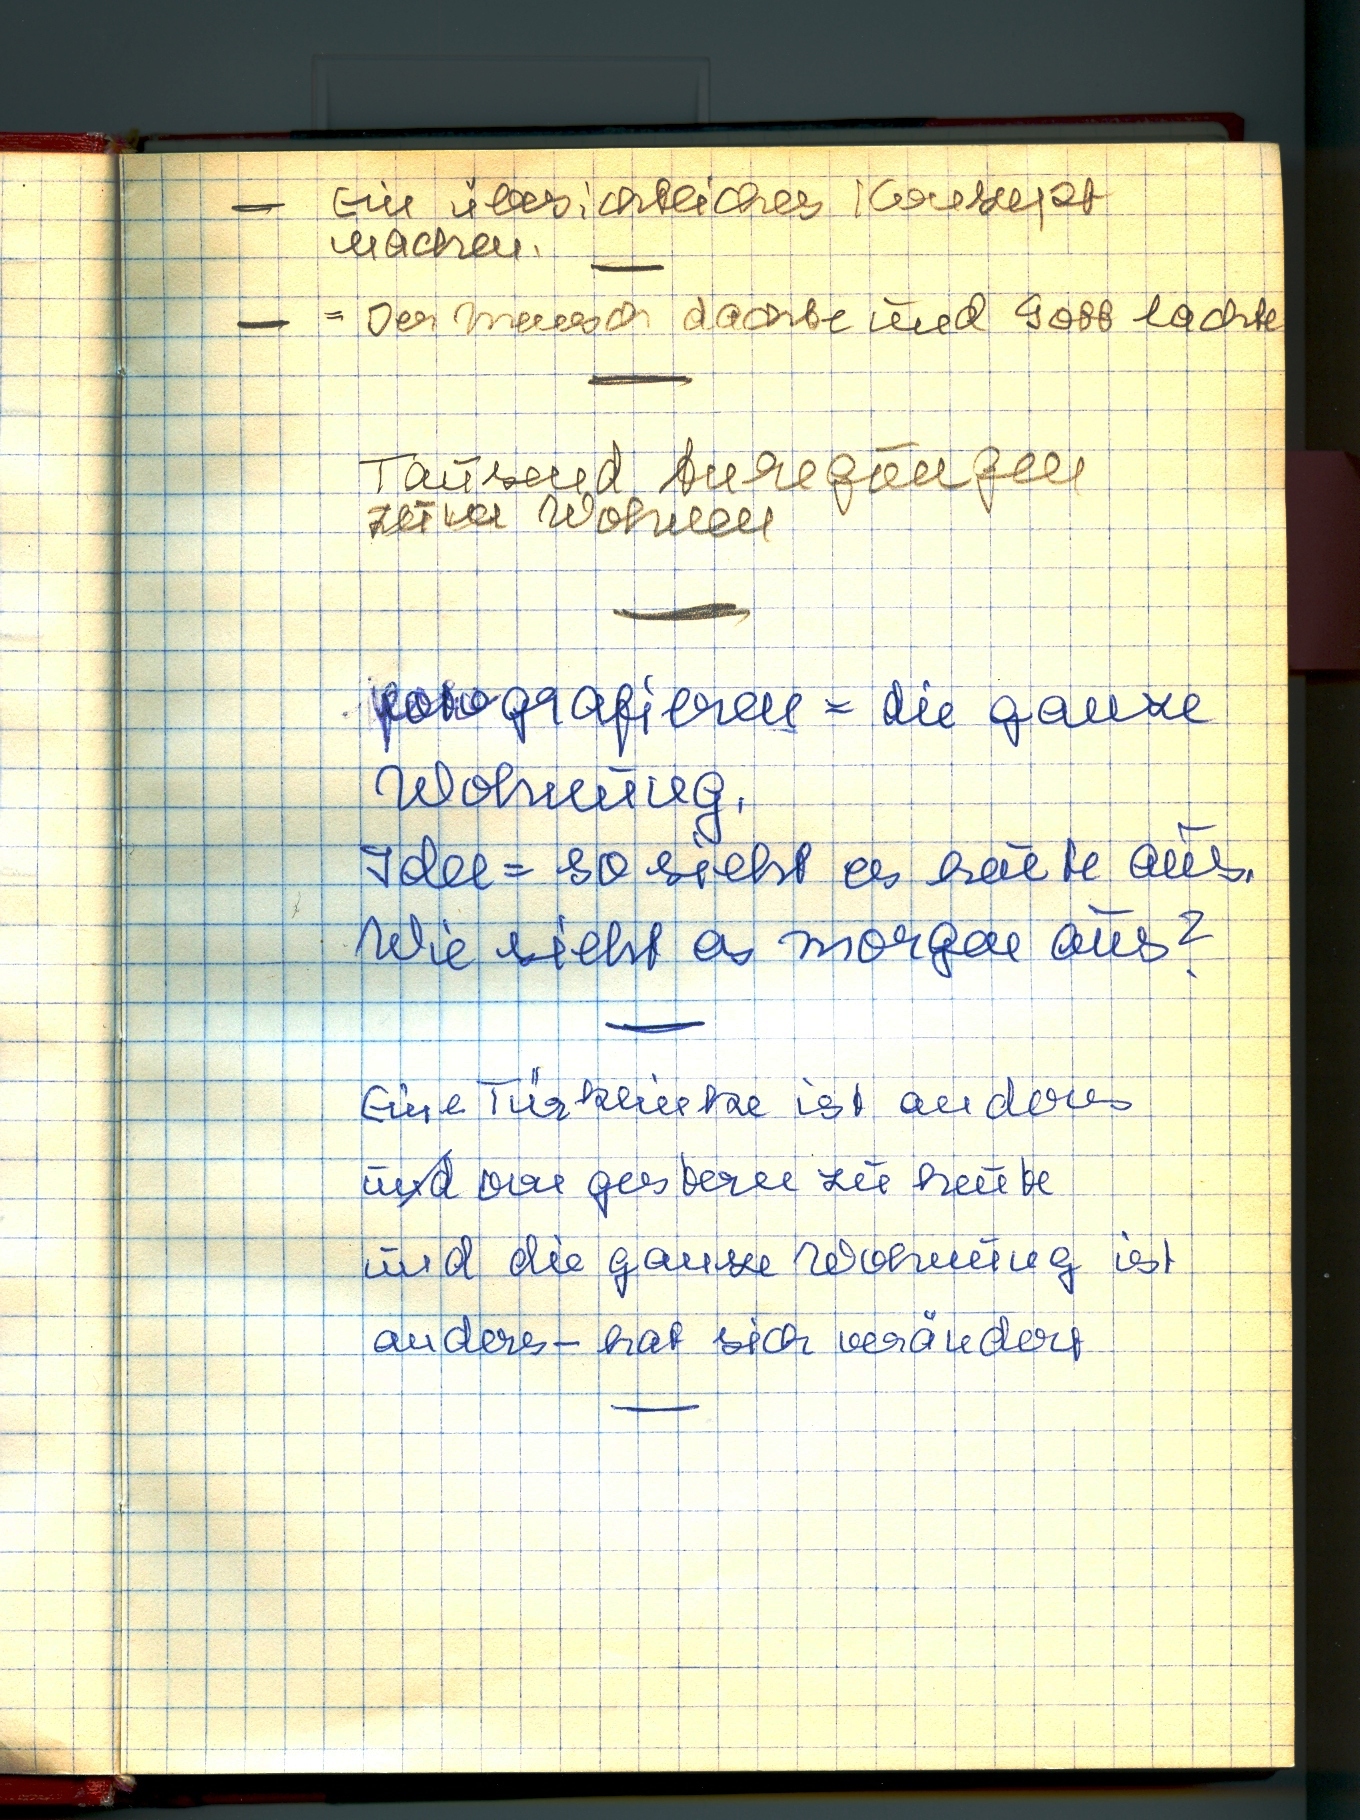 — Ein übersichtliches Konzept
machen.
—
— = Der Mensch dachte und Gott lachte
—
Tausend Anregungen
zum Wohnen
—
fotografieren = die ganze
Wohnung.
Idee = so sieht es heute aus.
Wie sieht es morgen aus?
—
Eine Türklinke ist anders
und von gestern zu heute
und die ganze Wohnung ist
anders – hat sich verändert
—